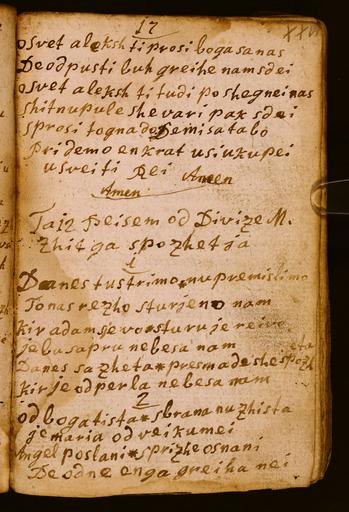 17
osvet aleksh ti prosi boga sa nas
De odpusti buh greihe nam sdei
osvet aleksh ti tudi poshegnei nas
shitnu pule shevari pak sdei
sprosi to gnado De mi sa tabo
pridemo enkrat usi ukupei
usveiti Rei Amen
Amen
Taiz Peisem od Divize M.
Zhit ga spozhetja
1
Danes tu strimo nu premislimo
Tonas rezho sturjeno nam
kir adam je vo sturu je reivo
je bu sa pru nebesa nam
Danes sa zheta presmadeshe spozh
eta
kir je odperla nebesa nam
2
od boga tista sbrana nu zhista
je maria od veikumei
Angel poslani sprizhe osnani
De od ne en ga greiha nei